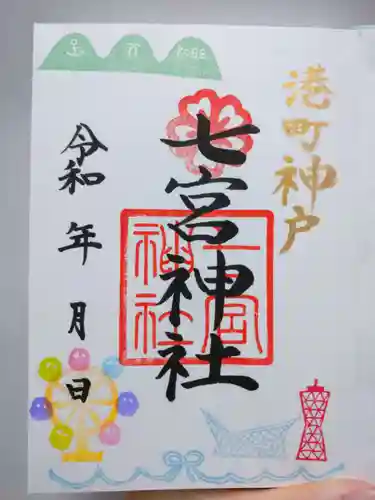 港町神戸
七宮神社
七宮
神社
令和 年 月 日